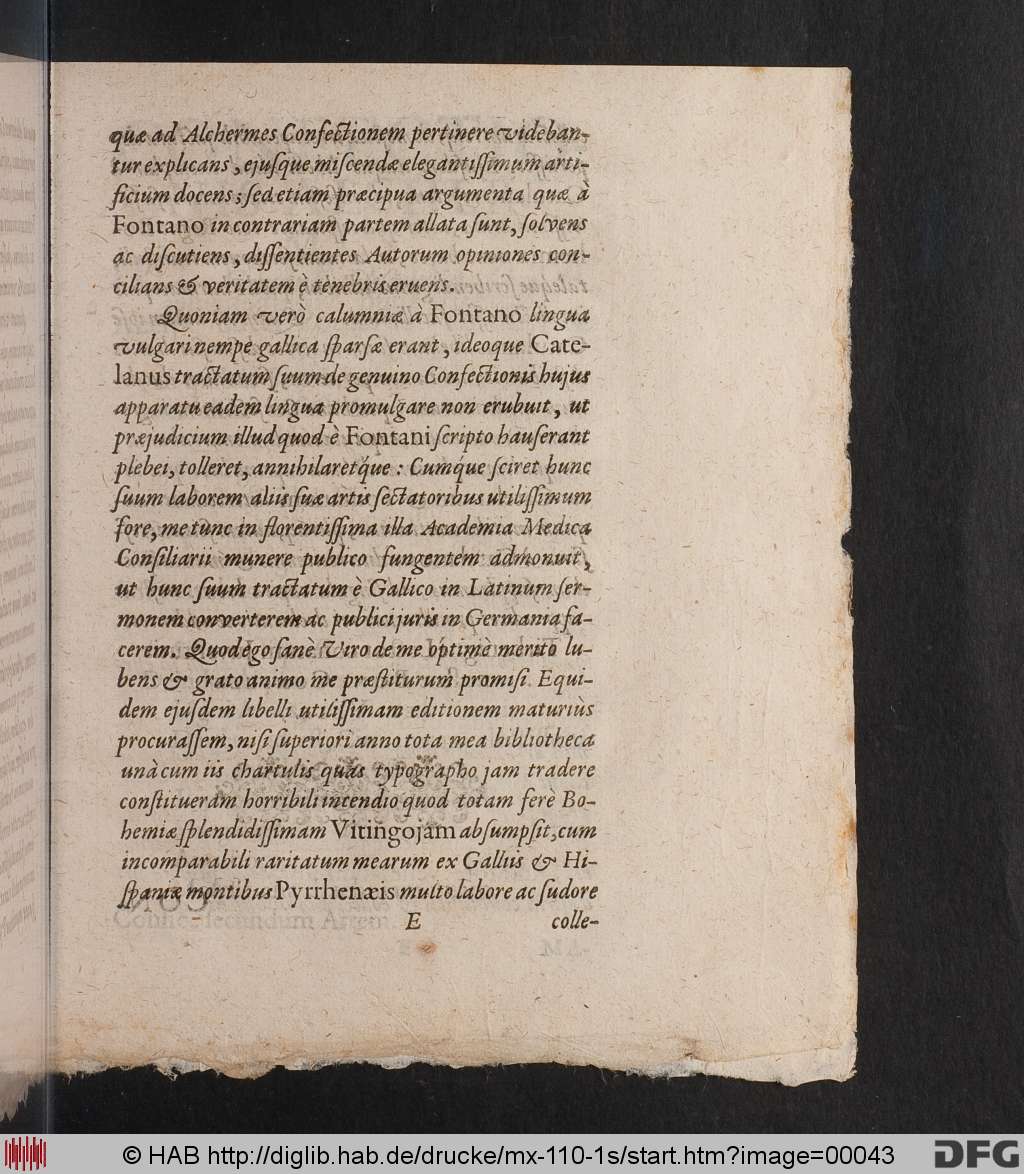 quæ ad Alchermes Confectionem pertinere videban-
tur explicans, ejuſque miſcendæ elegantiſſimum arti-
ficium docens; ſed etiam præcipua argumenta quæ à
Fontano in contrariam partem allata ſunt, ſolvens
ac diſcutiens, diſſentientes Autorum opiniones con-
cilians & veritatem è tenebris eruens.
Quoniam verò calumniæ à Fontano lingua
vulgari nempe gallica ſparſæ erant, ideoque Cate-
lanus tractatum ſuum de genuino Confectionis hujus
apparatu eadem lingua promulgare non erubuit, ut
præjudicium illud quod è Fontani ſcripto hauſerant
plebei, tolleret, annihilaretq́ue: Cumq́ue ſciret hunc
ſuum laborem aliis ſuæ artis ſectatoribus utiliſſimum
fore, me tunc in florentiſſima illa Academia Medica
Conſiliarii munere publico fungentem admonuit,
ut hunc ſuum tractatum è Gallico in Latinum ſer-
monem converterem ac publici juris in Germania fa-
cerem. Quod ego ſanè Viro de me optimè merito lu-
bens & grato animo me præſtiturum promiſi. Equi-
dem ejuſdem libelli utiliſſimam editionem maturiùs
procuraſſem, niſi ſuperiori anno tota mea bibliotheca
unà cum iis chartulis quas typographo jam tradere
conſtitueram horribili incendio quod totam ferè Bo-
hemiæ ſplendidiſſimam Vitingojam abſumpſit, cum
incomparabili raritatum mearum ex Galliis & Hi-
ſpaniæ montibus Pyrrhenæis multo labore ac ſudore
E colle-
© HAB http://diglib.hab.de/drucke/mx-110-1s/start.htm?image=00043
DFG